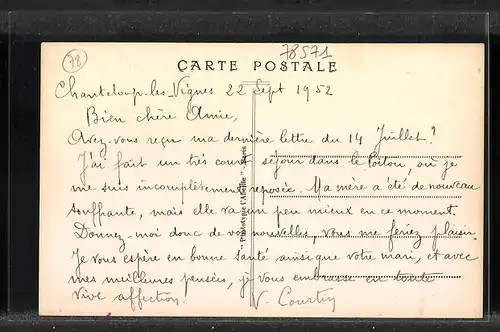 78
78571
CARTE POSTALE
Chanteloup-les-Vignes 22 Sept 1952
Bien chère Amie,
Avez-vous reçu ma dernière lettre du 14 Juillet?
J'ai fait un très court séjour dans le Poitou, où je
me suis incomplètement reposée. Ma mère a été de nouveau
souffrante, mais elle va un peu mieux en ce moment.
Donnez-moi donc de vos nouvelles, vous me feriez plaisir.
Je vous espère en bonne santé ainsi que votre mari, et avec
mes meilleures pensées, je vous embrasse en toute
vive affection.
V. Courtin
"Phototypie l'Abeille" - Paris